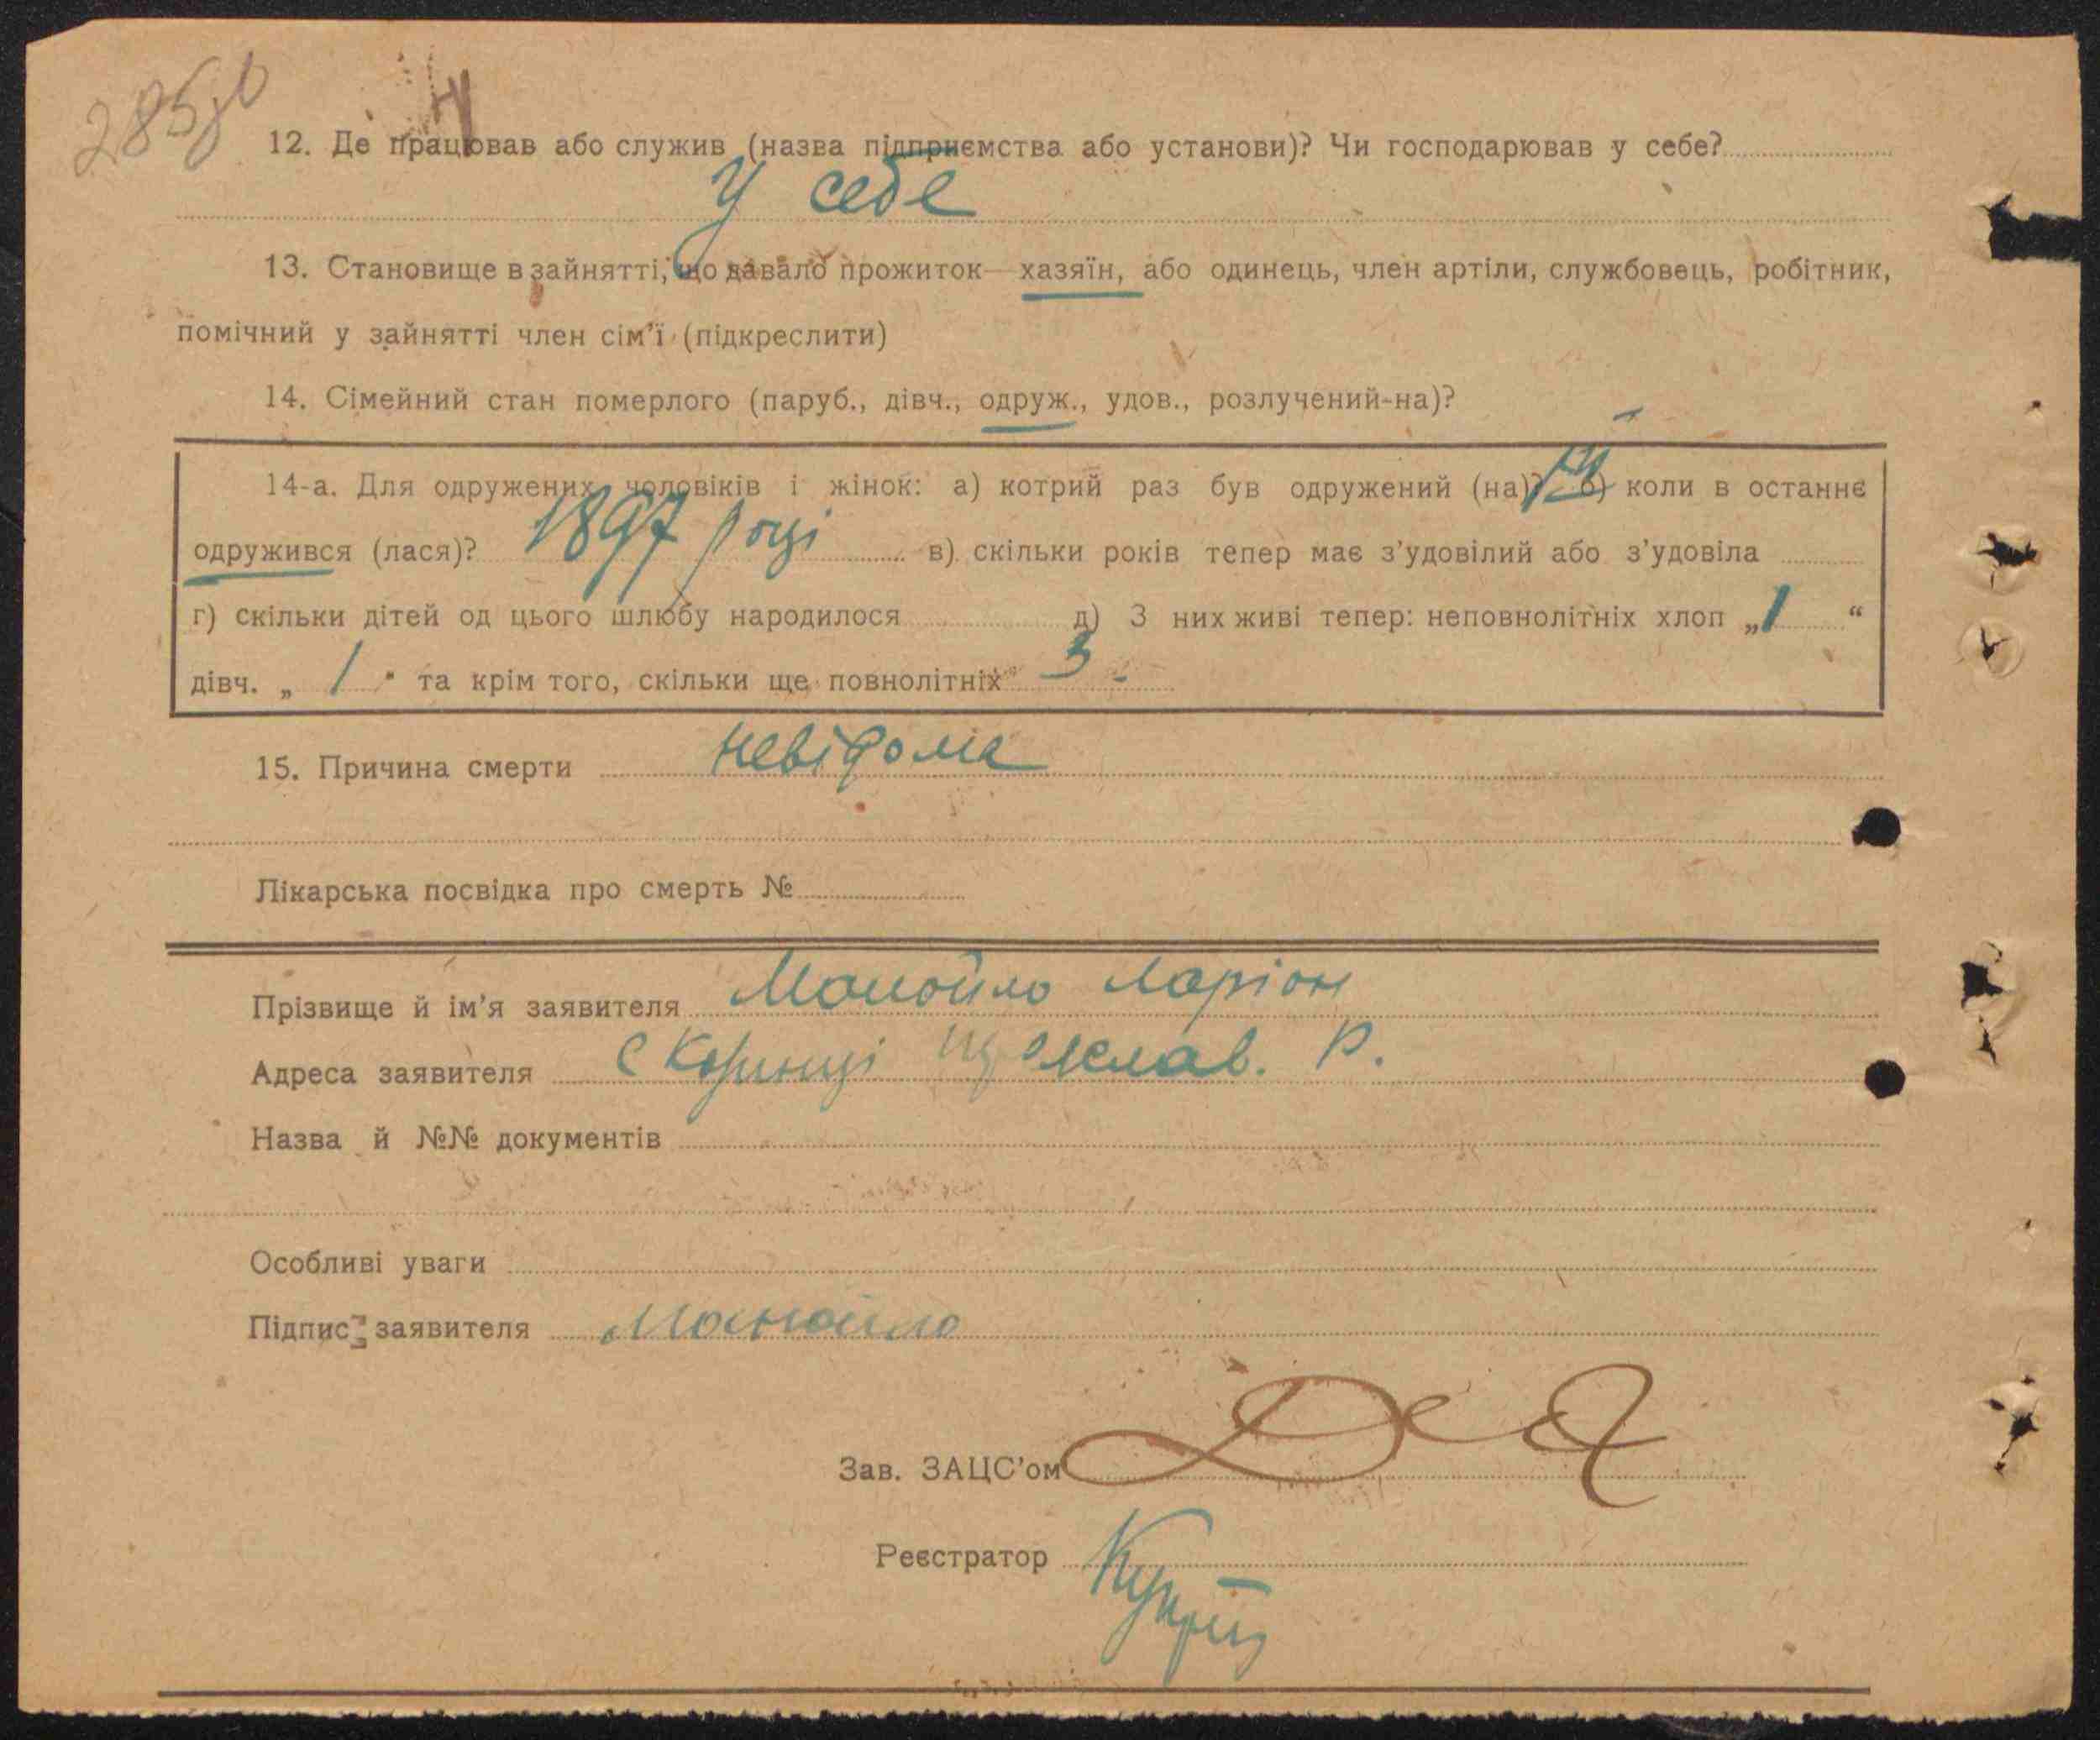 12. Де працював або служив (назва підприємства або установи)? Чи господарював у себе?
У себе
13. Становище в зайнятті, що давало прожиток — хазяїн, або одинець, член артіли, службовець, робітник,
помічний у зайнятті член сім’ї (підкреслити)
14. Сімейний стан померлого (паруб., дівч., одруж., удов., розлучений-на)?
14-а. Для одружених чоловіків і жінок: а) котрий раз був одружений (на)? б) коли в останнє
одружився (лася)? 1897 році в) скільки років тепер має з’удовілий або з’удовіла
г) скільки дітей од цього шлюбу народилося д) З них живі тепер: неповнолітніх хлоп „1“
дівч. „ 1 " та крім того, скільки ще повнолітніх 3 -
15. Причина смерти невідома
Лікарська посвідка про смерть №
Прізвище й ім’я заявителя Манойло Ларіон
Адреса заявителя с Коринці Р.
Назва й №№ документів
Особливі уваги
Підпис заявителя Манойло
Зав. ЗАЦС’ом
Реєстратор